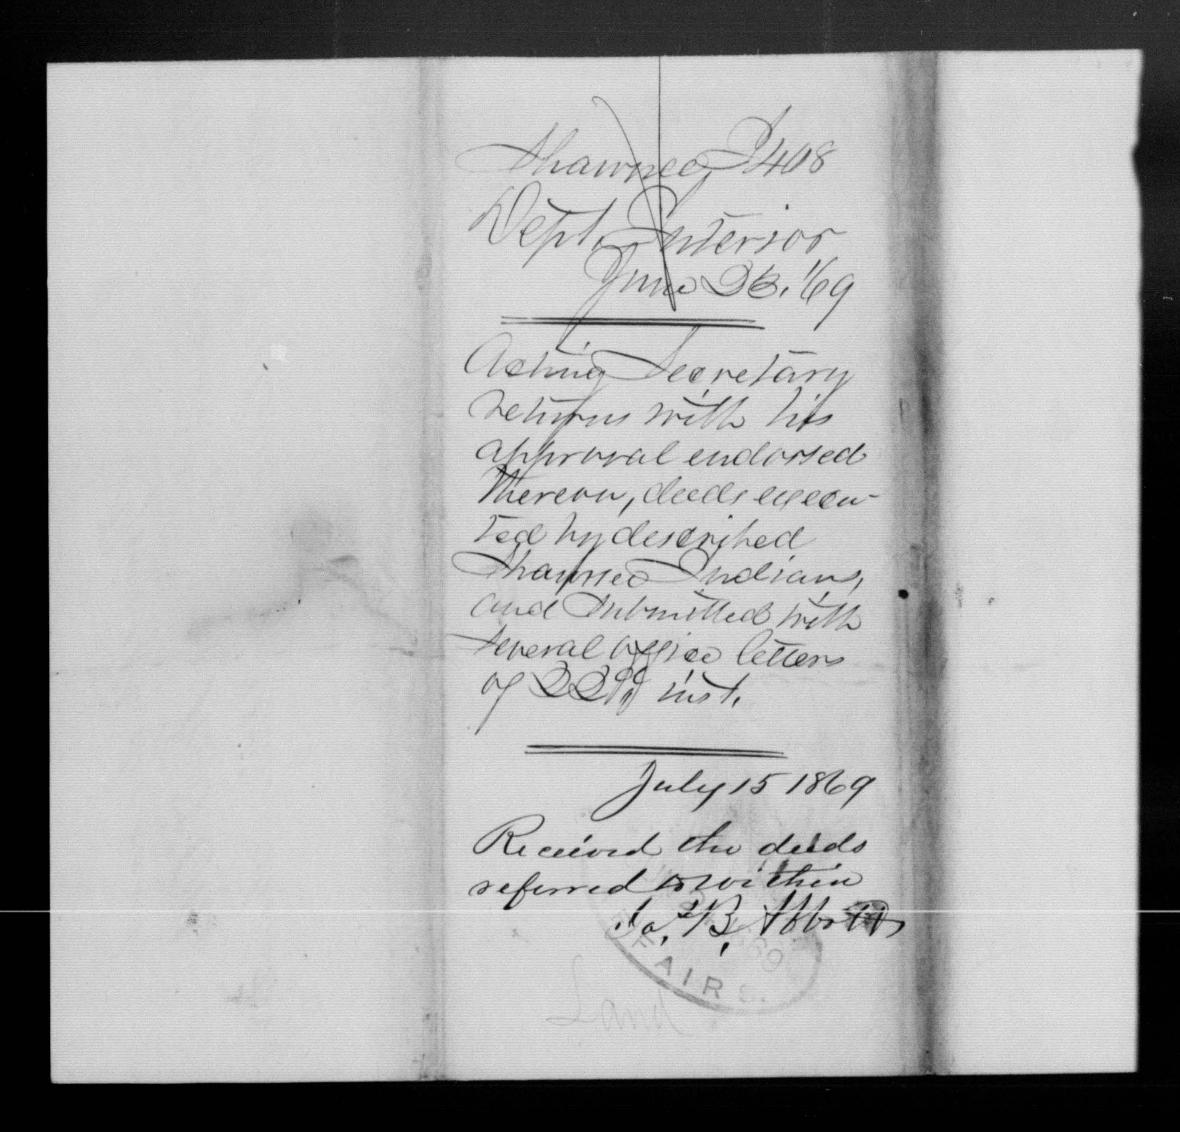 Shawnee, I 408
Dept. Interior
June 23. '69
Acting Secretary
returns with his
approval endorsed
thereon, deeds execu-
ted by described
Shawnee Indians,
and submitted with
several office letters
of 22d inst.
July 15 1869
Received the deeds
referred to within
Jas B. Abbott
69
FAIRS.
Land